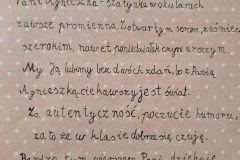 Pani Agnieszka - szatynka w okularach
zawsze promienna, z otwartym sercem, z uśmiechem
szerokim, nawet poniedziałek czyni uroczym.
My Ją lubimy bez dwóch zdań, bo z Panią
Agnieszką ciekawszy jest świat.
Za autentyczność, poczucie humoru,
za to że w klasie dobrze się czuję.
Bardzo tym wierszem Pani dziękuję